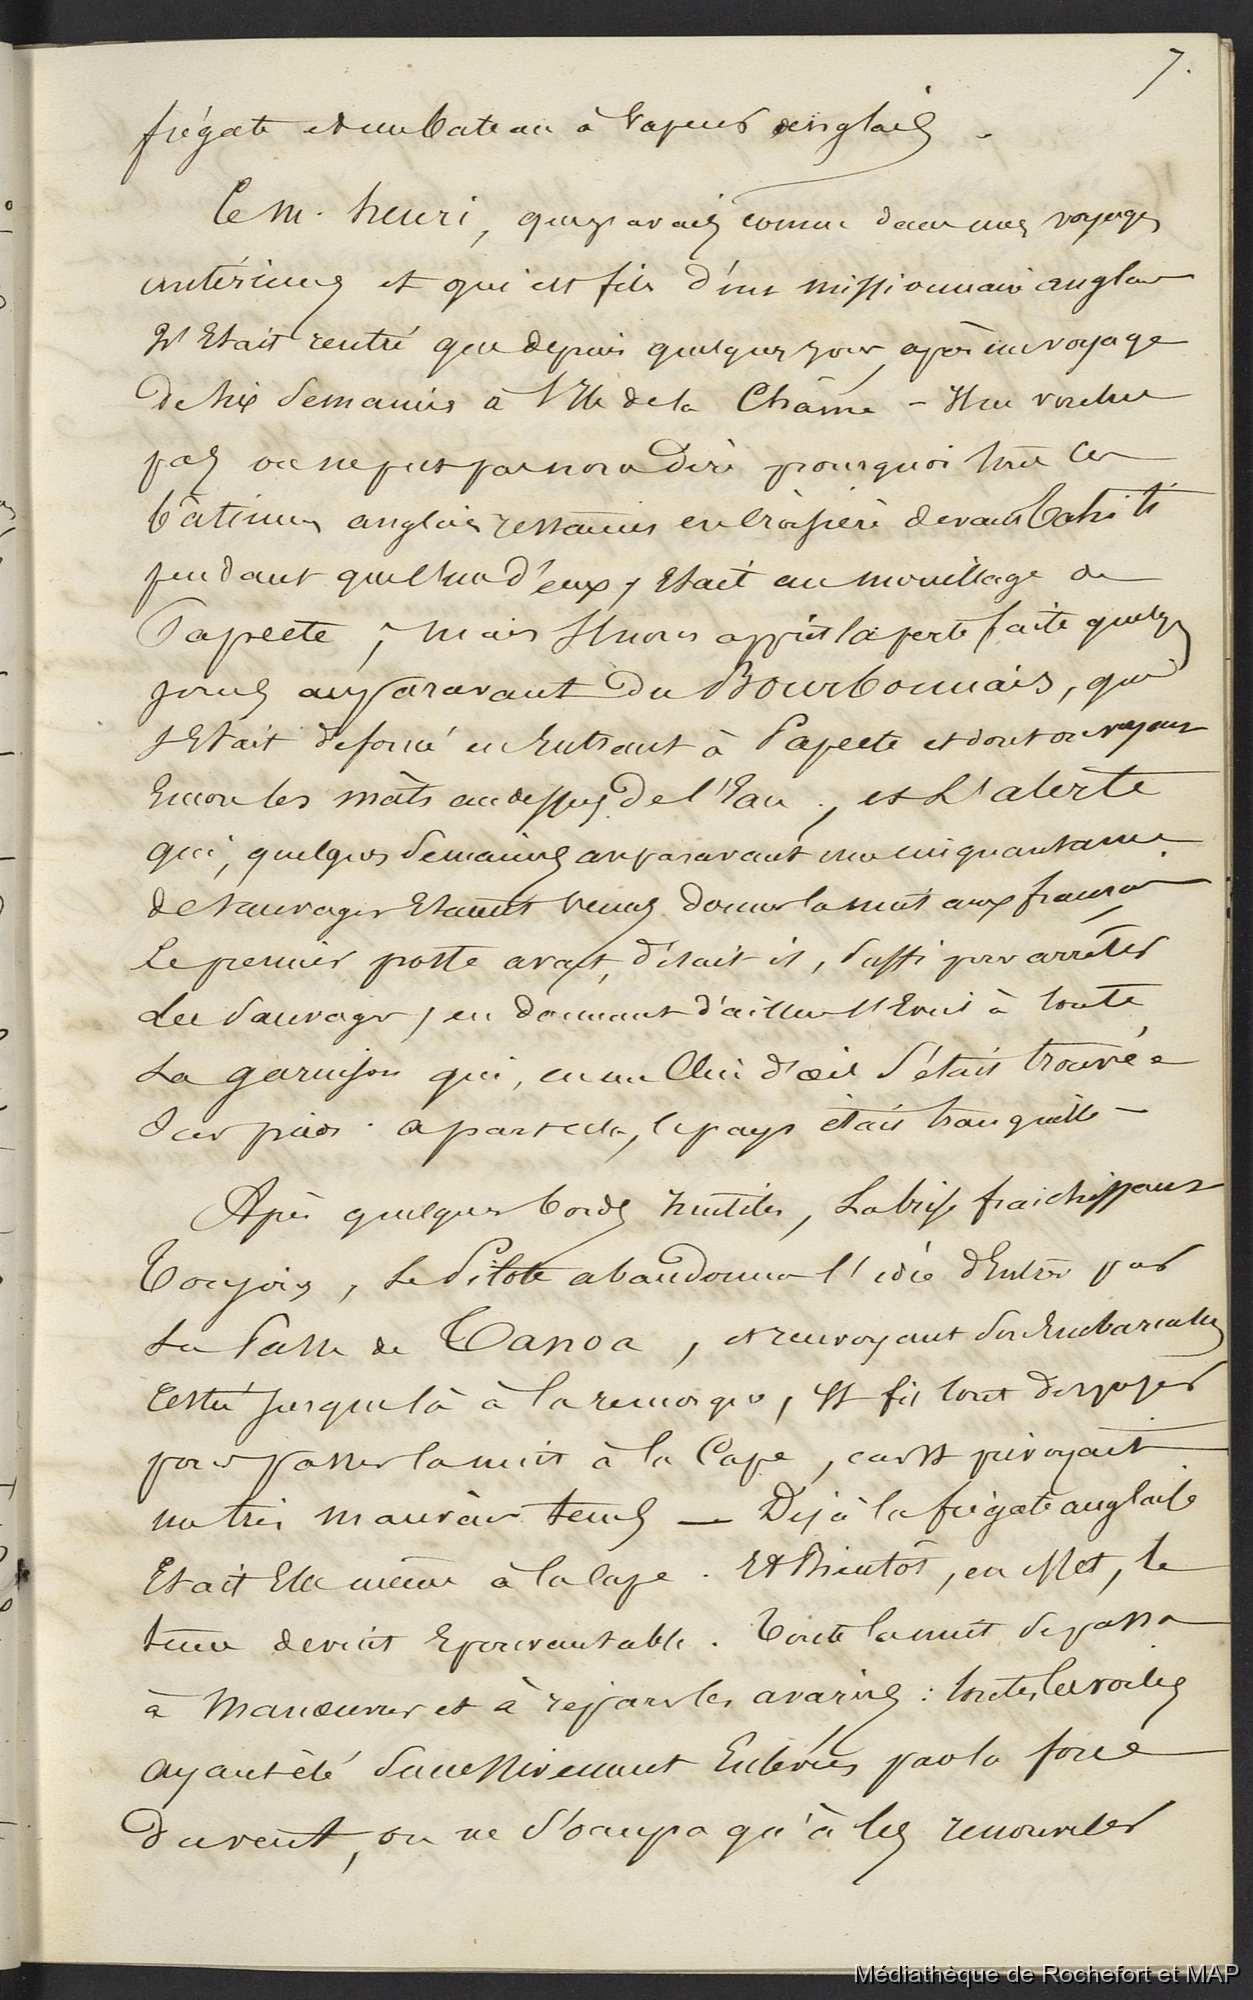 7.
frégate et un bateau à vapeur anglais.
Ce M. henri, que j'avais connu dans mes voyages
antérieurs et qui est fils d'un missionnaire anglais
n'était rentré que depuis quelques jours, après un voyage
de six semaines à l'Ile de la Chaîne - Il ne voulut
pas ou ne put pas nous dire pourquoi tous ces
bâtimens anglais restaient en croisière devant Tahiti
pendant que l'un d'eux, était au mouillage de
Papeete; mais Il nous apprit la perte faite quelques
jours auparavant du Bourbonnais, qui
s'était défoncé en Entrant à Papeete et dont on voyait
Encore les mâts au dessus de l'Eau; et L'alerte
que, quelques semaines auparavant une cinquantaine
de sauvages Etaient venus donner la nuit aux français
Le premier poste avait, disait-il, suffi pour arrêter
Les sauvages, en donnant d'ailleurs l'Eveil à toute
La garnison qui, en un clin d'œil s'était trouvée
sur pied. à part cela, le pays était tranquille -
Après quelques bords inutiles, La brise fraichissant
Toujours, Le Pilote abandonna l'idée d'Entrer par
La Passe de Tanoa, et renvoyant son Embarcation
restée jusque là à la remorque, Il fit tout disposer
pour passer la nuit à la Cape, car Il prévoyait
un très mauvais tems — Déjà la frégate anglaise
Etait Elle même à la Cape. Et Bientôt, en effet, le
tems devint Epouvantable. Toute la nuit se passa
à Manœuvrer et à réparer les avaries: toutes les voiles
ayant été successivement Enlevées par la force
du vent, on ne s'occupa qu'à les renouveler
Médiathèque de Rochefort et MAP